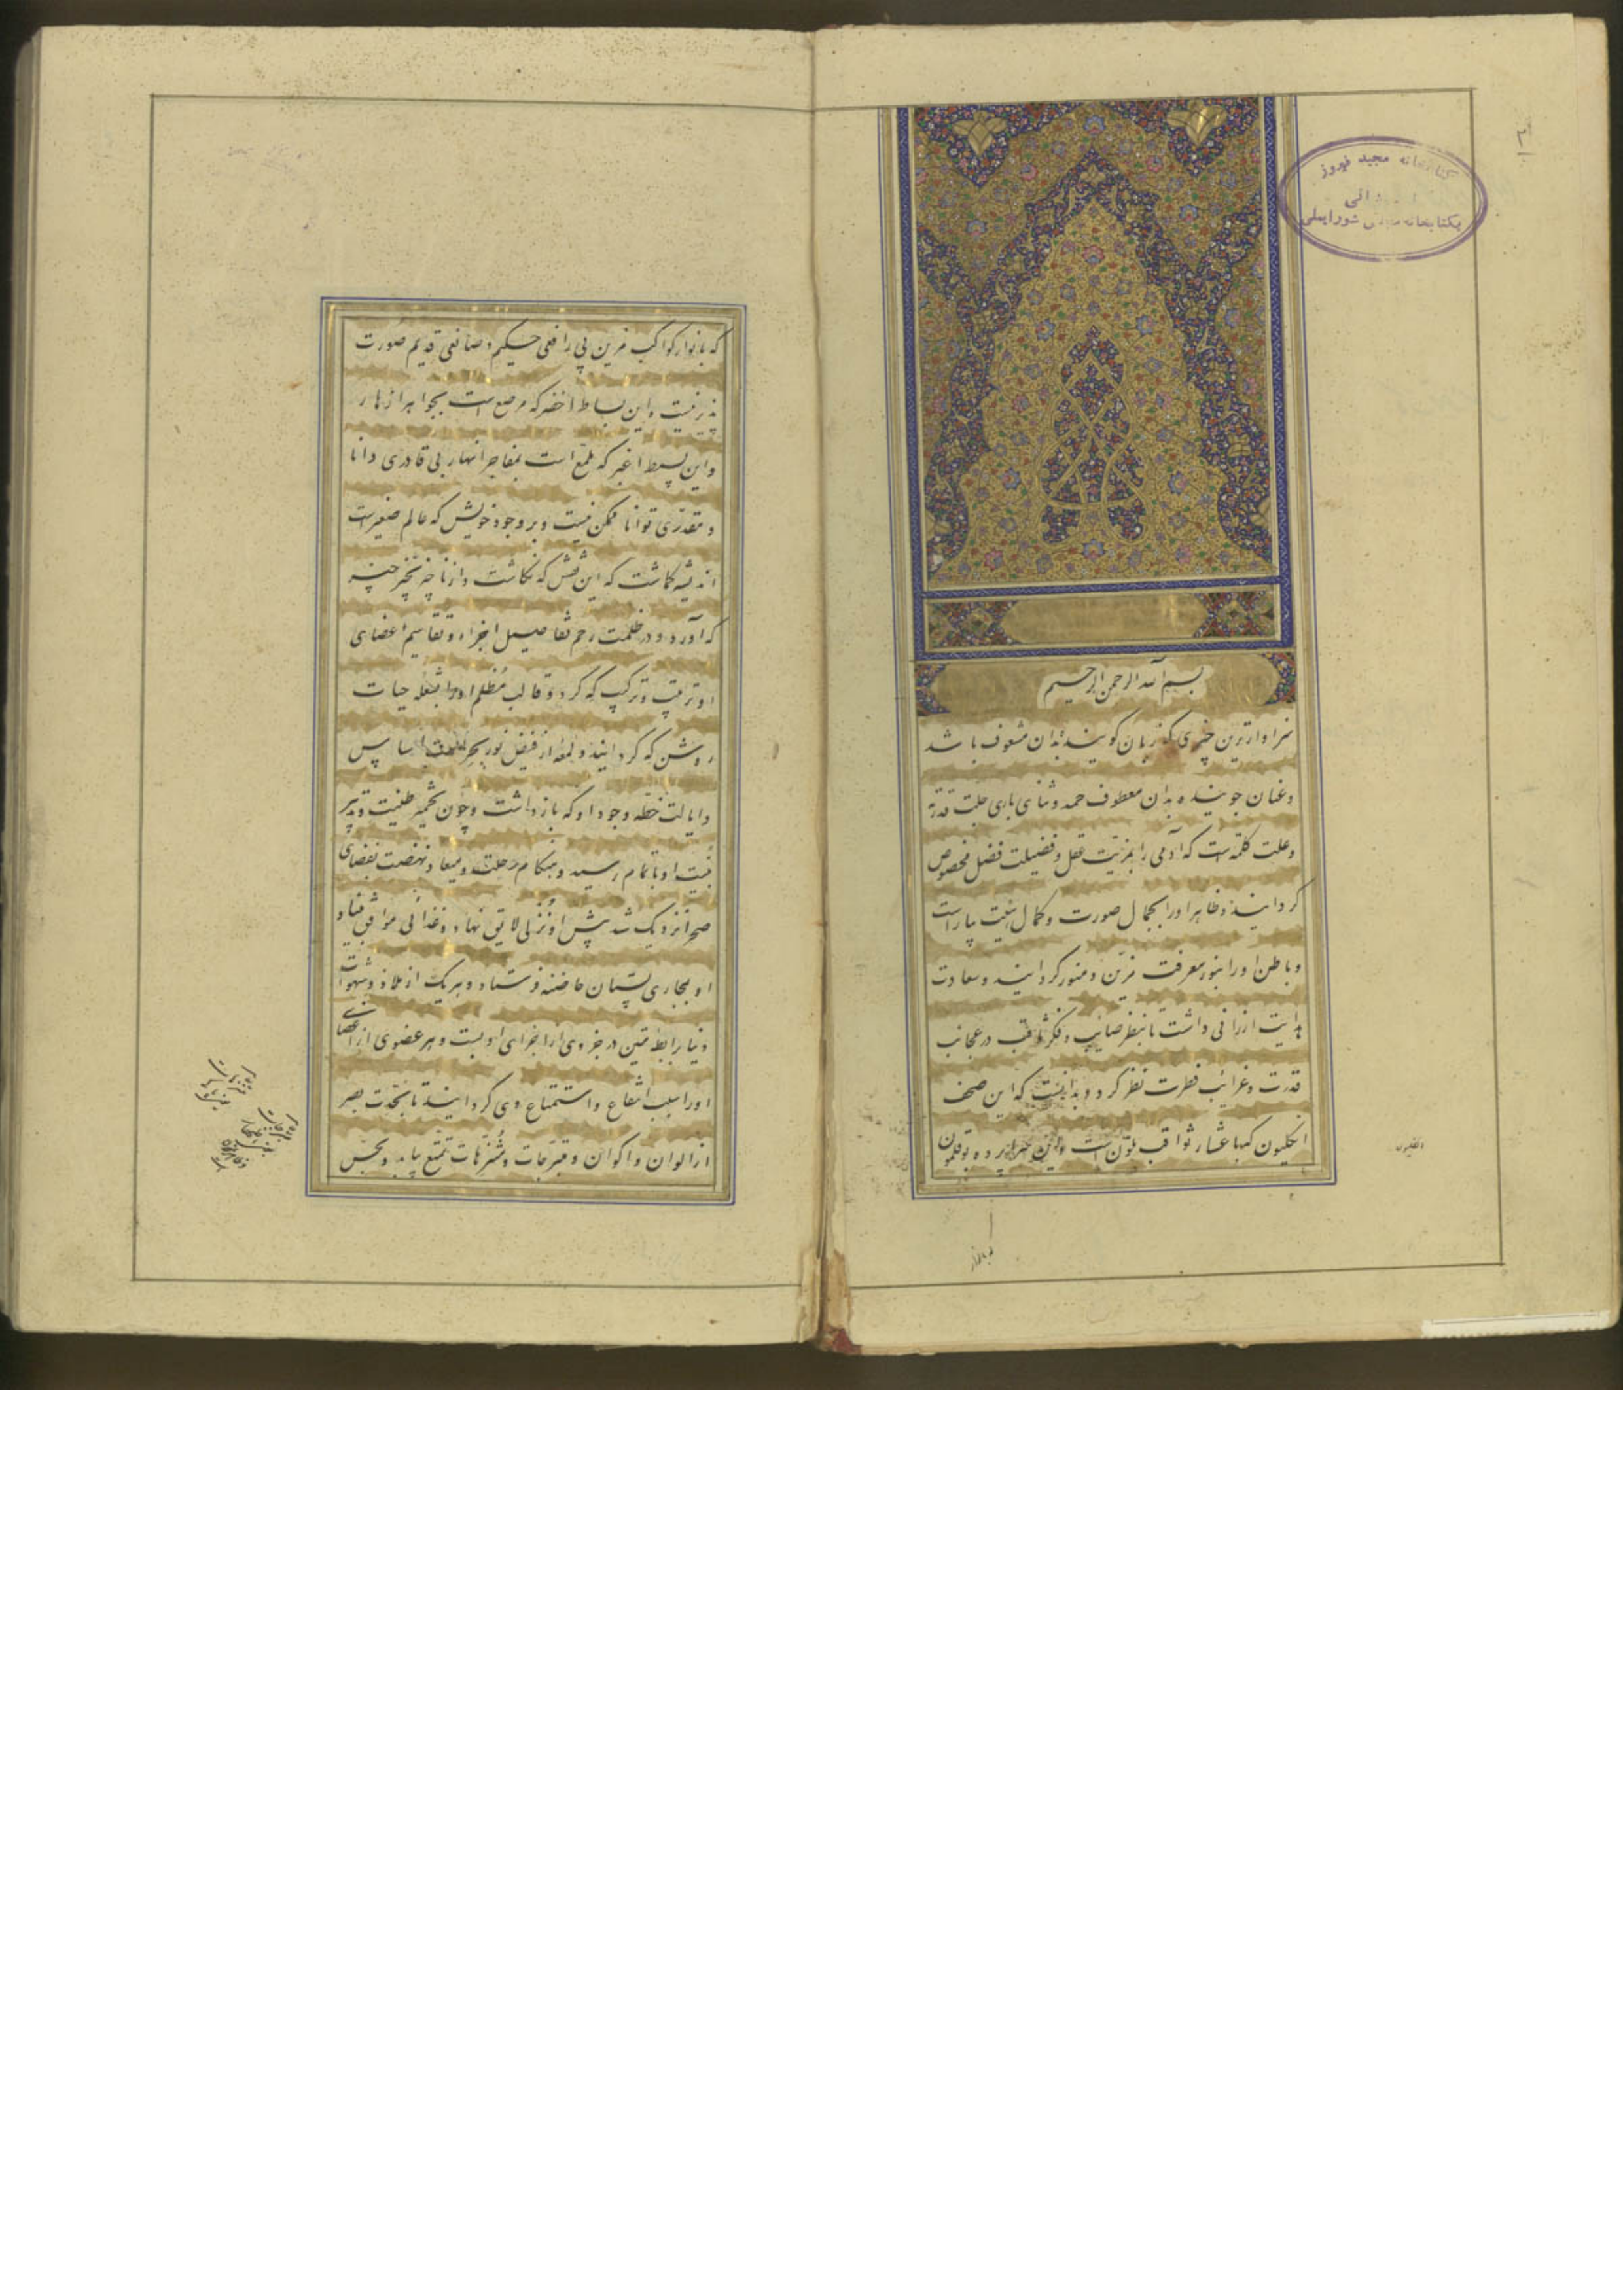 ۳
کتابخانه مجید فیروز
بکتابخانه مجلس شورایملی
بسم الله الرحمن الرحیم
سزاوارترین چیزی که زبان گوینده بدان مشعوف باشد
و عنان جوینده بدان معطوف حمد و ثنای باری جلت قدرته
و علت کلمته است که آدمی را بمزیت عقل و فضیلت فضل مخصوص
گردانید و ظاهر او را بجمال صورت و کمال بنیت بیاراست
و باطن او را بنور معرفت مزین و منور گردانید و سعادت
هدایت ارزانی داشت تا بنظر صائب و فکر ثاقب در عجائب
قدرت و غرائب فطرت نظر کرد و بدانست که این صحف
انگلیون که باعشار ثواقب ملون است و این پرده بوقلمون
که بانوار کواکب مزین بی رافعی حکیم و صانعی قدیم صورت
پذیر نیست و این بساط اخضر که مرصع است بجواهر ازهار
و این بسیط اغبر که ملمع است بمفاجر انهار بی قادری دانا
و مقدری توانا ممکن نیست و بر وجود خویش که عالم صغیر است
اندیشه گماشت که این نقش که نگاشت و از ناچیز بچیز
که آورد و در ظلمت رحم تفاصیل اجزاء و تقاسیم اعضای
او ترتیب و ترکیب که کرد و قالب مظلم او را بشعله حیات
روشن که گردانید و لمعه از فیض نور بحر اساس
و ایالت خطه وجود او که باز داشت و چون تخمیر طینت و تدبیر
بنیت او باتمام رسید و هنگام رحلت و میعاد نهضت بفضای
صحرا نزدیک شد پیش او نزلی لایق نهاد و غذائی موافق میعاد
او بمجاری پستان حاضنه فرستاد و هریک از ملاذ و شهوات
دنیا رابطه متین در جزوی از اجزای او بست و هر عضوی از اعضای
او را سبب انتفاع و استمتاع وی گردانید تا بتحدت بصر
از الوان و اکوان و متفرجات و متنزهات تمتع یابد و بحس